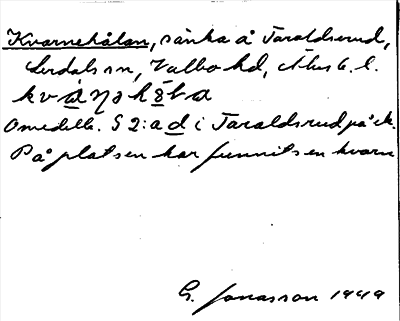 Kvarnehålan, sänka å Taraldserud,
Lerdals sn, Valbo hd, Älvsb. l.
kvàŋəhȣla
Omedelb. S 2: a d i Taraldsrud på ek.
På platsen har funnits en kvarn
G. Jonasson 1949